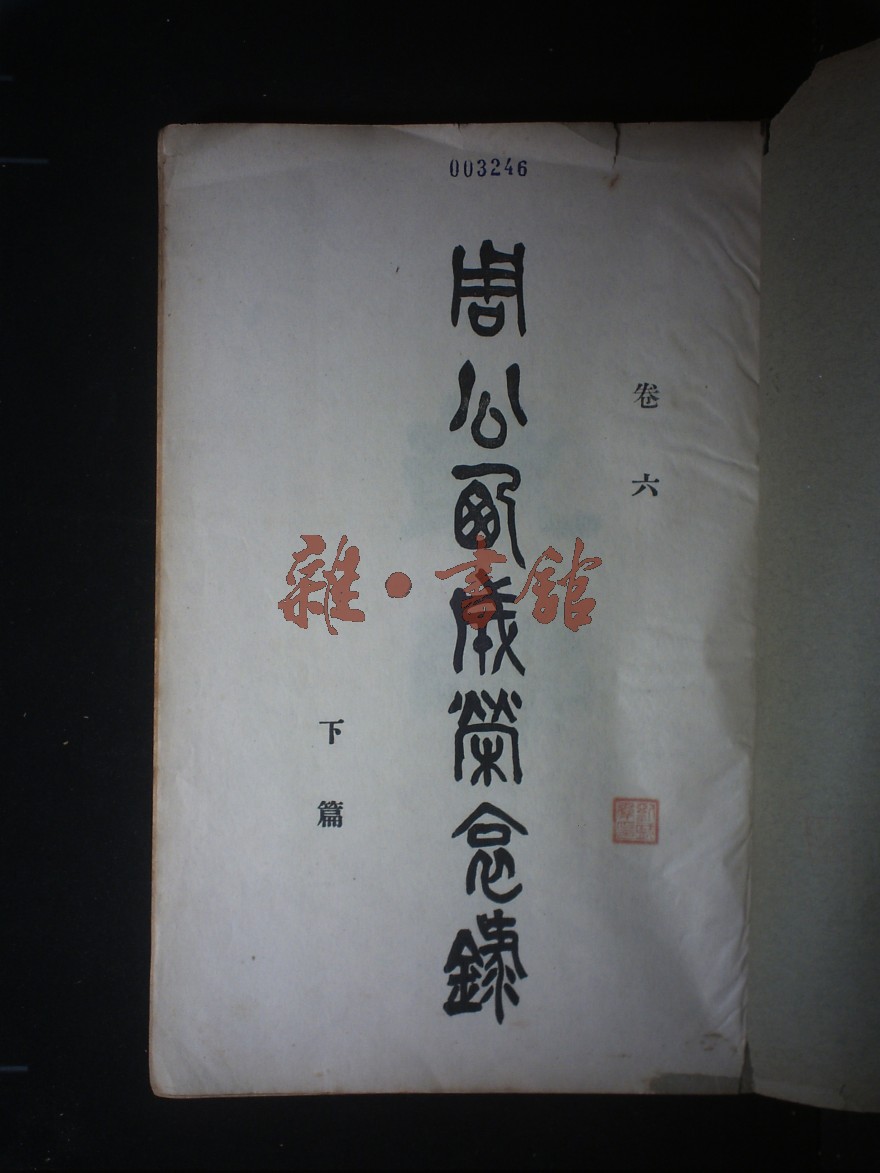 003246
卷六
周公榮念錄
下篇
雜·書館